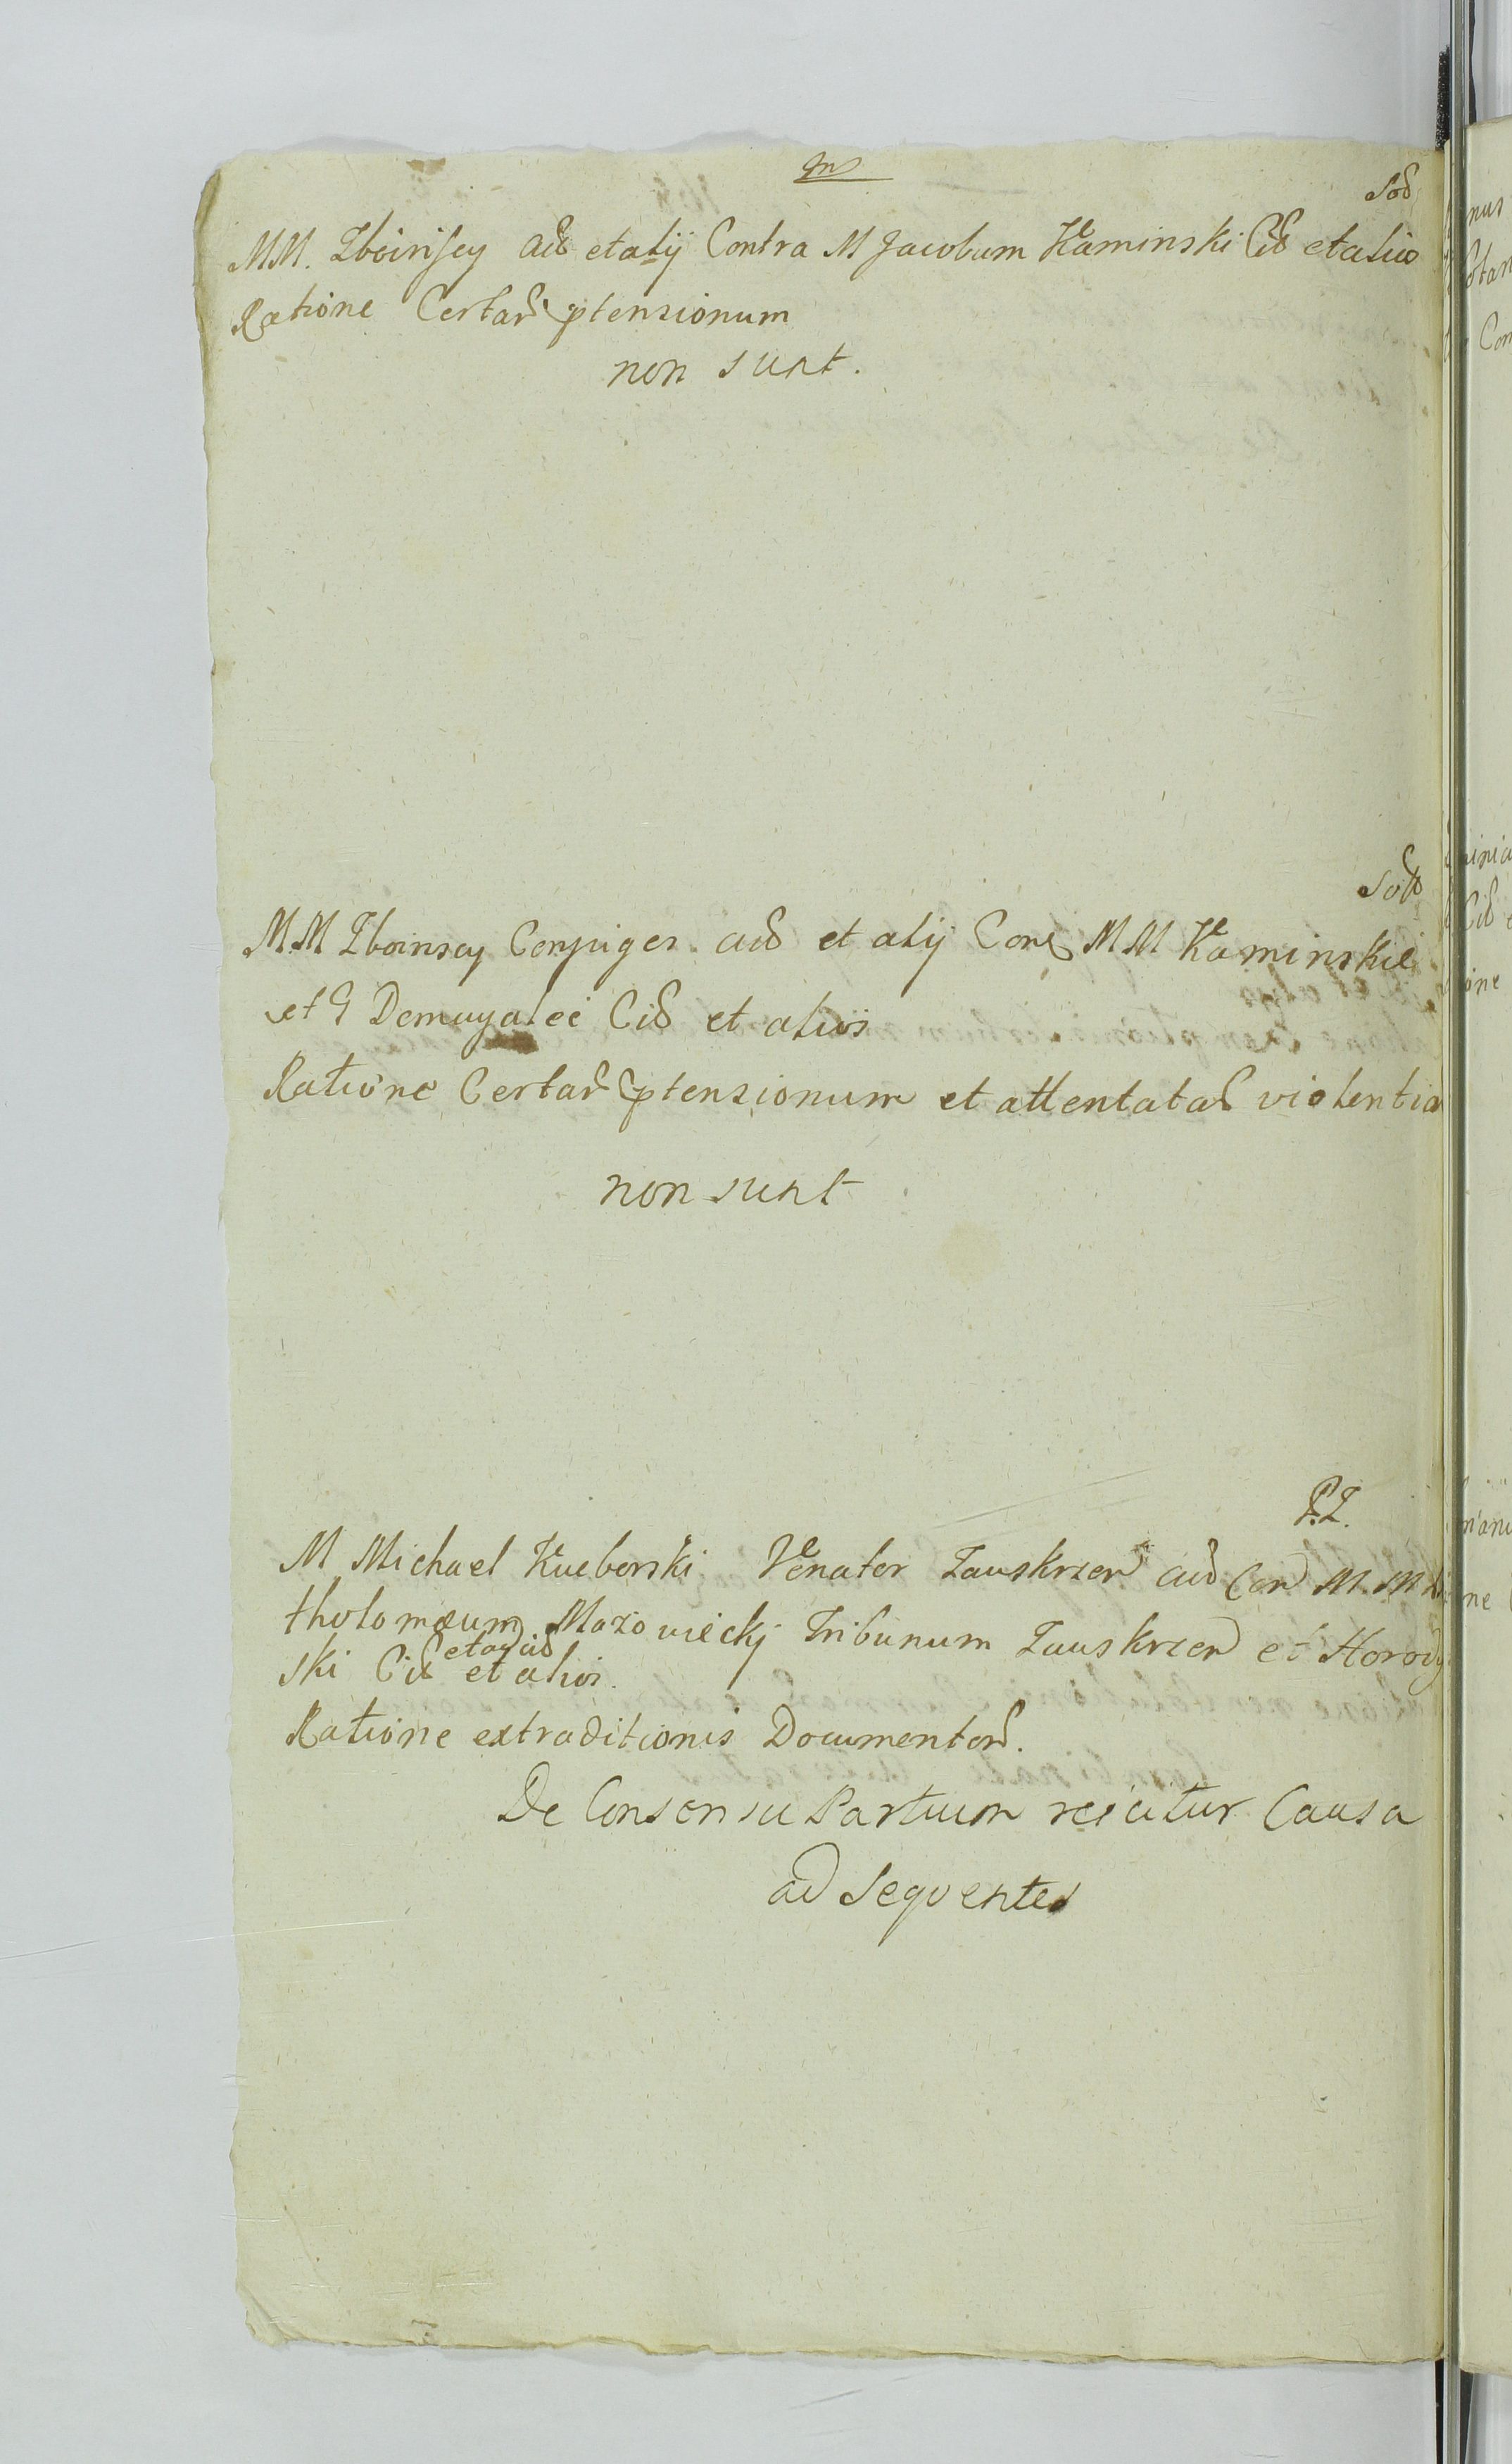 MM. Zboinscy Act et alij Contra M Jacobum Kaminski Cit et alios
Ratione Certar ptensionum
non sunt.
MM Zboinscy Conjuges act et alij Con MM Kaminskie
et G Cit et alios
Ratione Certar ptensionum et attentatar violentia
non sunt
P.Z.
M Michael Kueborski Venator Zauskrzen act Con M. M
tholomæum Mazowieckj Tribunum Zauskrzen et Horody
ski Cit et alios.
Ratione extraditionis Documentor.
De Consensu Partium reicitur Causa
ad Seqventes